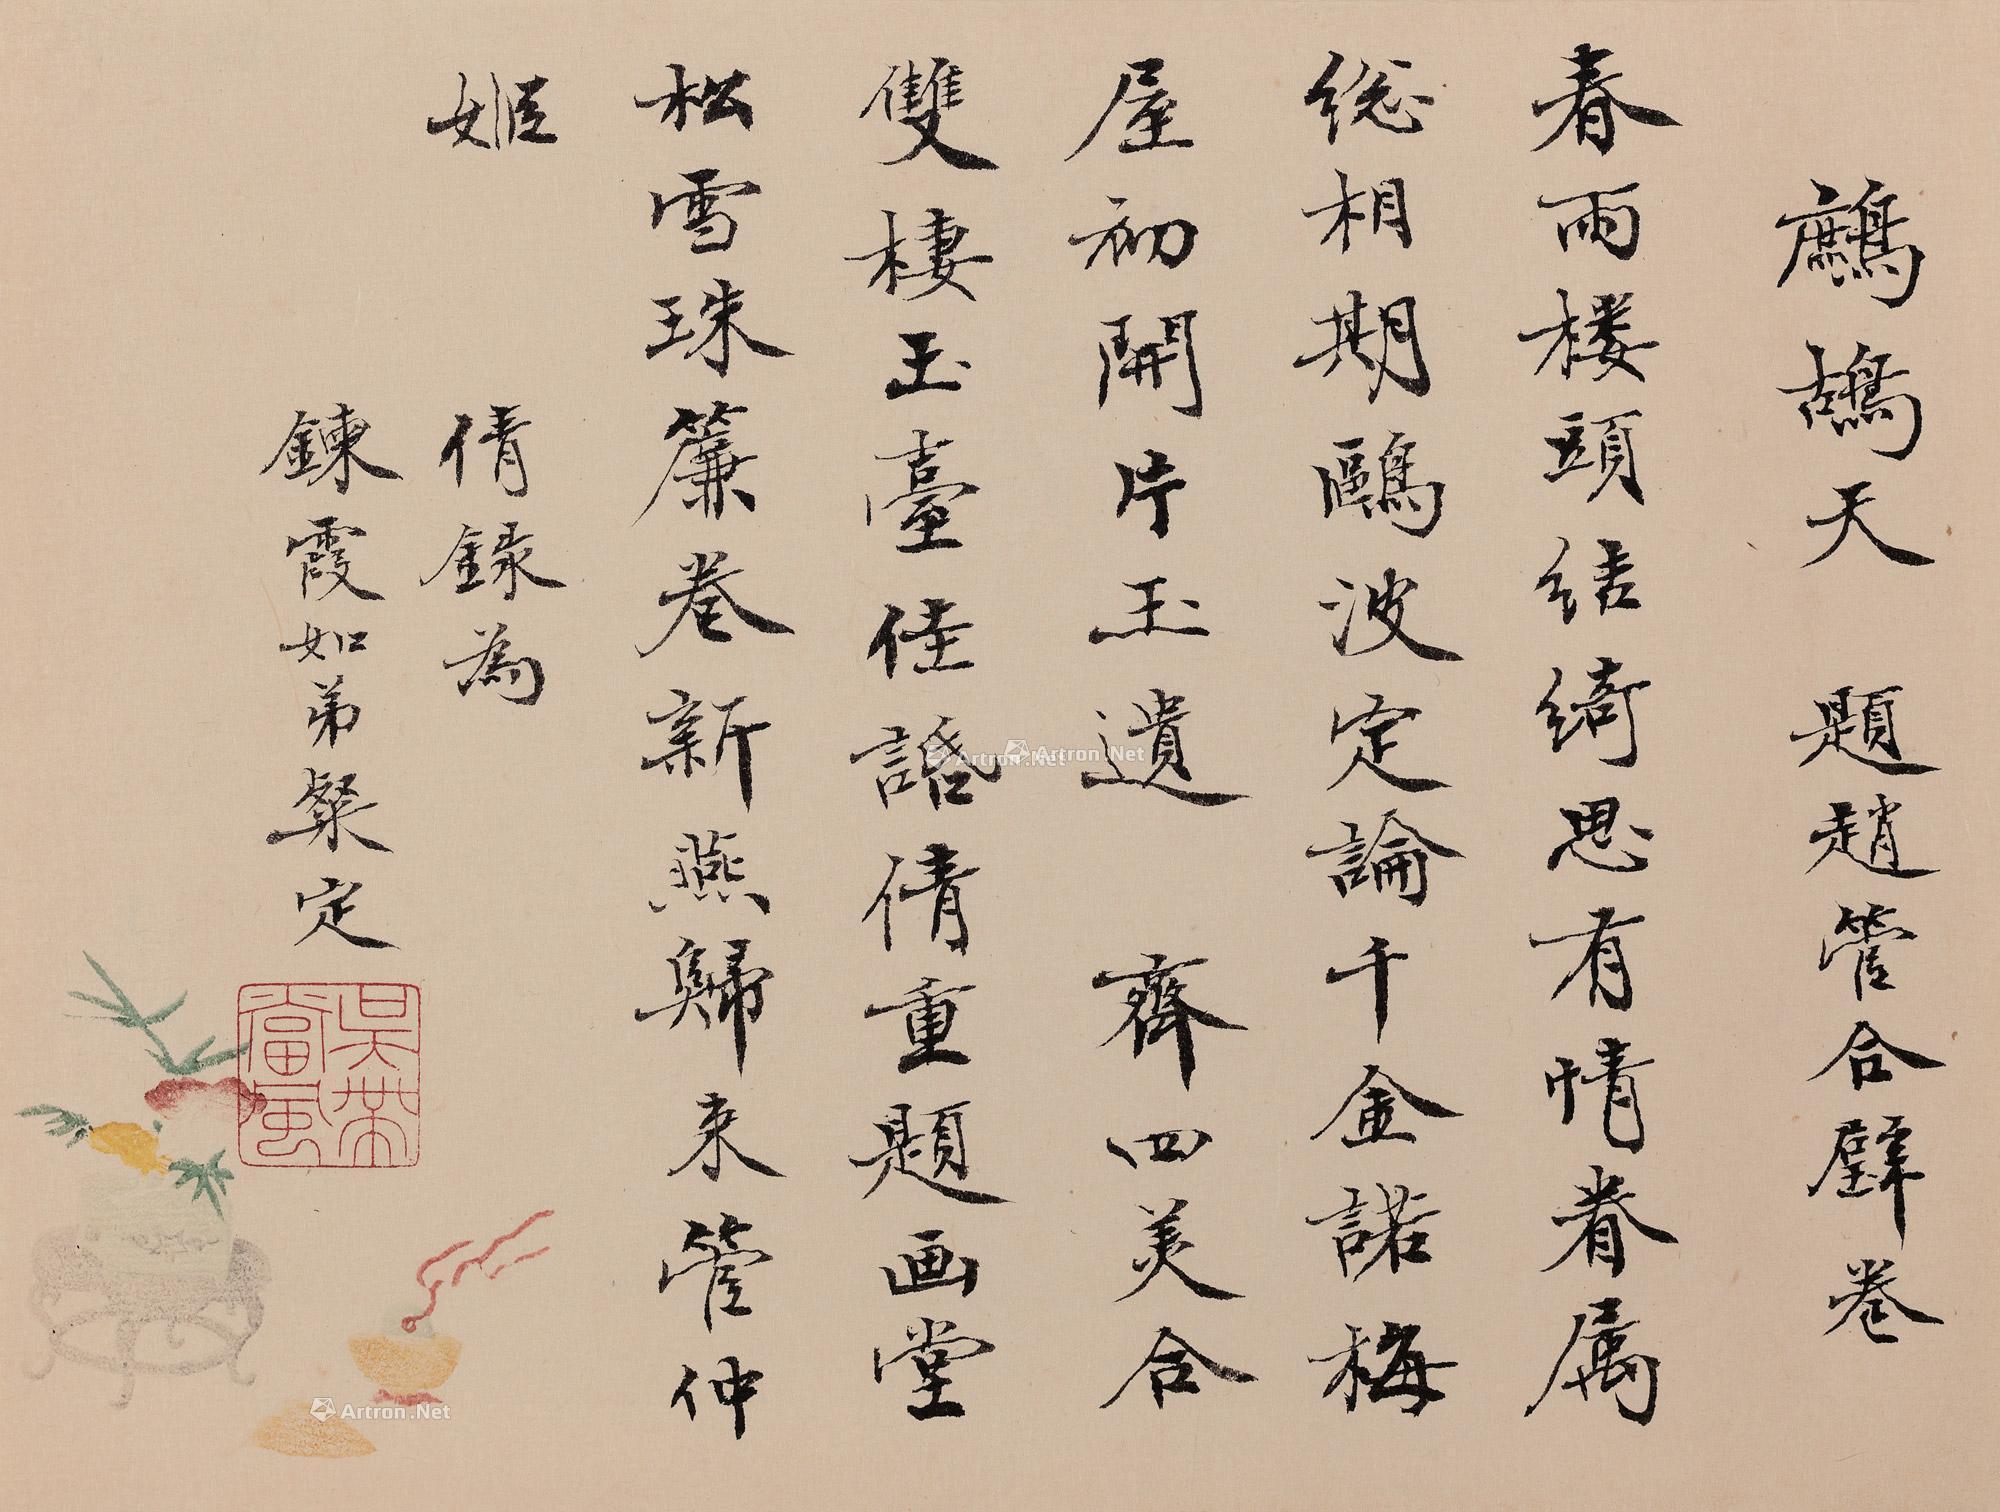 鷓鴣天 題趙管合璧卷
春雨楼頭结綺思有情眷属
総相期鷗波定論千金諾梅
屋初開片玉遺 齊四美合
雙棲玉臺佳話倩重題画堂
松雪珠簾卷新燕歸来管仲
姬
倩録為
鍊霞如弟粲定
吳帶當風
Artron.Net
Artron.Net
Artron.Net